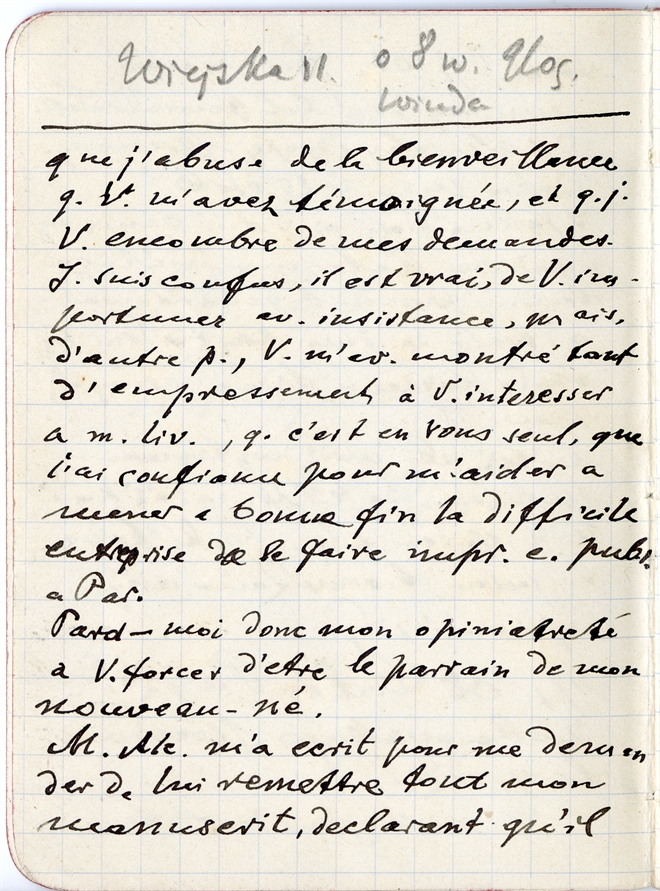 Wiejska 11. o 8 w. Głos.
winda
que j'abuse de la bienveillance
q. V. m'avez témoignée, et q. j.
V. encombre de mes demandes.
J. suis confus, il est vrai, de V. im-
portuner av. insistance, mais,
d'autre p., V. m'av. montré tant
d'empressement à V. interesser
a m. liv., q. c'est en Vous seul, que
j'ai confiance pour m'aider a
mener a bonne fin la difficile
entreprise de le faire impr. e. publ.
a Par.
Pard-moi donc mon opiniatreté
a V. forcer d'etre le parrain de mon
nouveau-né.
M. m'a ecrit pour me deman
der d. lui remettre tout mon
manuscrit, declarant qu'il